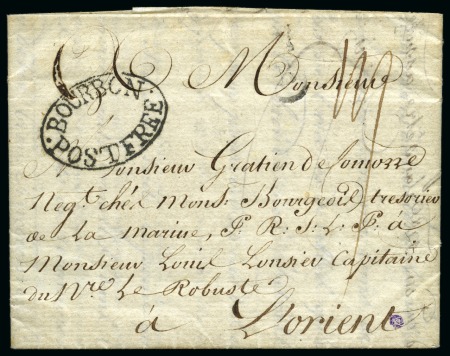 Monsieur
BOURBON
POST FREE
Monsieur Gratien de Comorre
Negt. chés Monsr. Bourgeois tresorier
de La Marine, P. R. S. L. P. à
Monsieur Louis Lonsier Capitaine
du Nre. Le Robuste
à L'orient